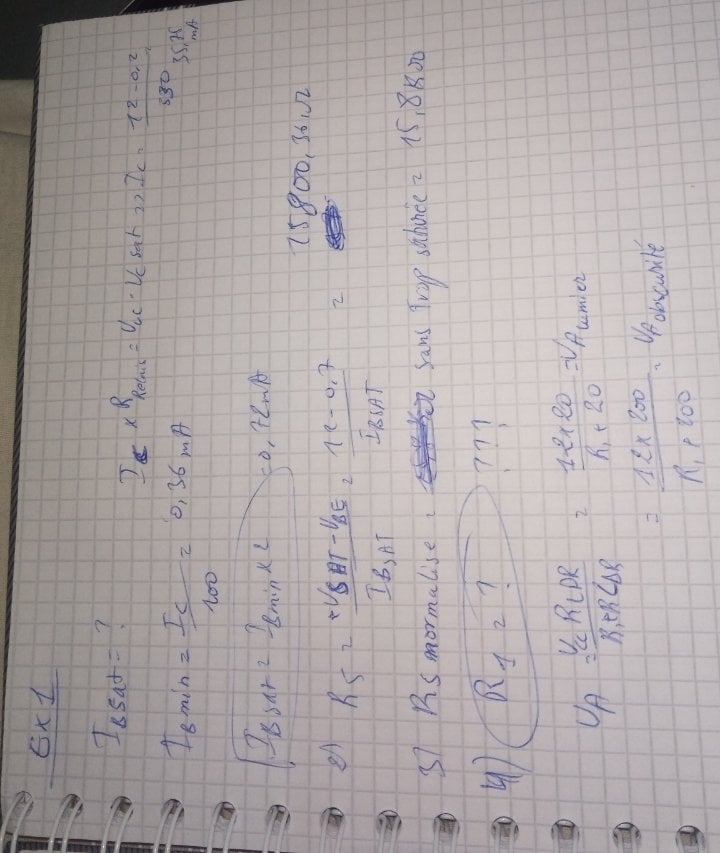 Ex 1
IBsat = ?
Ic x R Relais = Vcc - VCsat => Ic = 12 - 0,2 / 330
35,75 mA
IBmin = Ic / 100 = 0,36 mA
IBsat = IBmin x 2 = 0,72 mA
2) R5 = +VSAT - VBE / IBSAT = 12 - 0,7 / IBSAT = 15800,36
3) R5 normalisé = sans trop = 15,8
4) R1 = ? ???
VA = Vcc RLDR / R1+RLDR = 12x20 / R1 + 20 = VA lumier
= 12x200 / R1 + 200 = VA obscurité